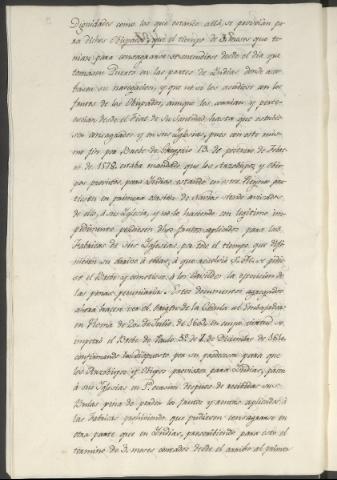 Dignidades como los que estando allá, se proveían pa
ra dichos Obispados; que el tiempo de 3 meses que te
nían para consagrarse se entendiese desde el día que
tomasen Puerto en las partes de Indias donde aca
baban su navegacion, y que no se les acudiese con los
frutos de los Obispados, aunque los corrían y perte
necían desde el Fiat de Su Santidad, hasta que estubie
sen consagrados y en sus Yglesias, pues con este mis
mo fin, por Breve de Gregorio 13. de primero de Febre
ro de 1578. estaba mandado, que los Arzobispos y Obis
pos provistos para Indias, estando en estos Reynos par
tiesen en primera ocasion de Navíos siendo avisados
de ello, á su Yglesia, y no lo haciendo con legítimo im
pedimento perdiesen dhos frutos aplicados para las
Fabricas de sus Yglesias, por todo el tiempo que difi
rieren su avíaso á ellas, á que accedió S. Std. se pidie
se el Breve y cometiese á los Cavildos la execucion de
las penas pecuniarias. Estos documentos agregados
ahora hacen ver el origen de la Cedula al Embaxador
en Roma de 20 de Julio de 1609, en cuya virtud se
impetró el Breve de Paulo 5.º de 7 de Diciembre de 1610
confirmando lo dispuesto por su predecesor para que
los Arzobispos y Obispos provistos para Indias, pasen
á sus Yglesias en 1.ª ocasion despues de recibidas sus
Bulas pena de perder los frutos y rentas aplicados á
las Fabricas prohibiendo que pudiesen consagrarse en
otra parte que en Indias, prescribiendo para esto el
termino de 3. meses contados desde el arribo al primer